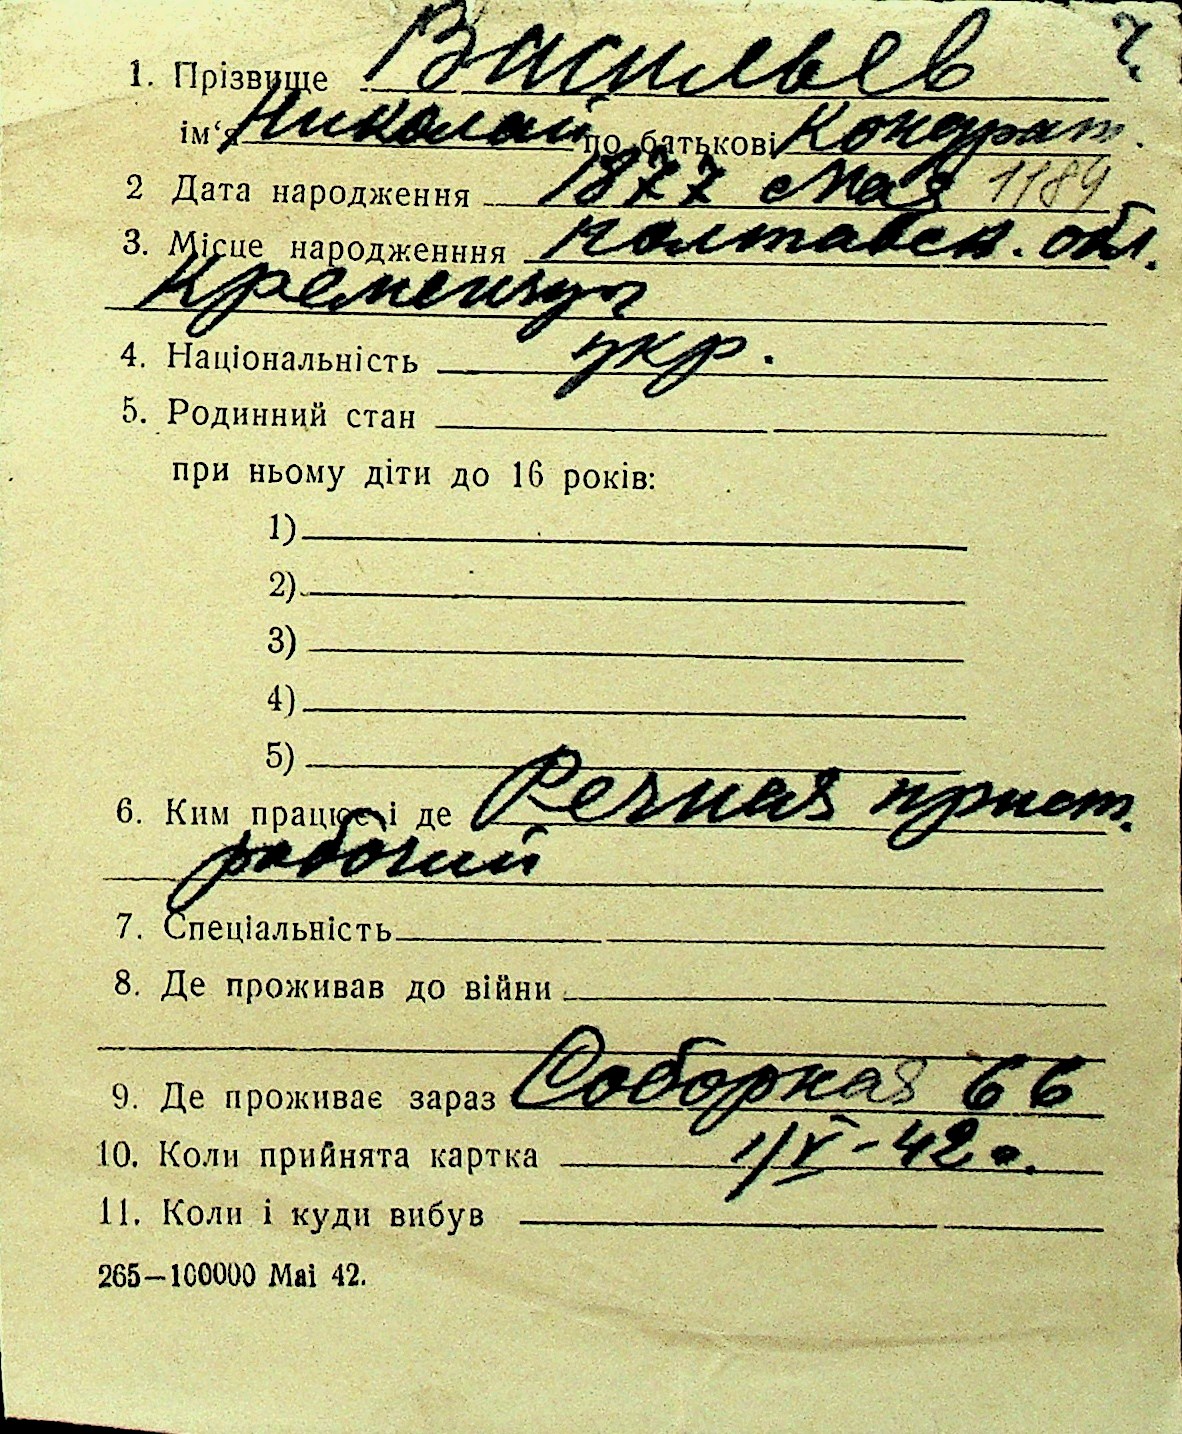 ч.
1. Прізвище Васильев
ім‘я Николай по батькові Кондрат.
2 Дата народження 1877 мая 1189
3. Місце народженння Полтавск. обл.
Кременчуг
4. Національність укр.
5. Родинний стан
при ньому діти до 16 років:
1)
2)
3)
4)
5)
6. Ким працює і де Речная прист.
рабочий
7. Спеціальність
8. Де проживав до війни
9. Де проживає зараз Соборная 66
10. Коли прийнята картка 1/V-42 г.
11. Коли і куди вибув
265—100000 Mai 42.